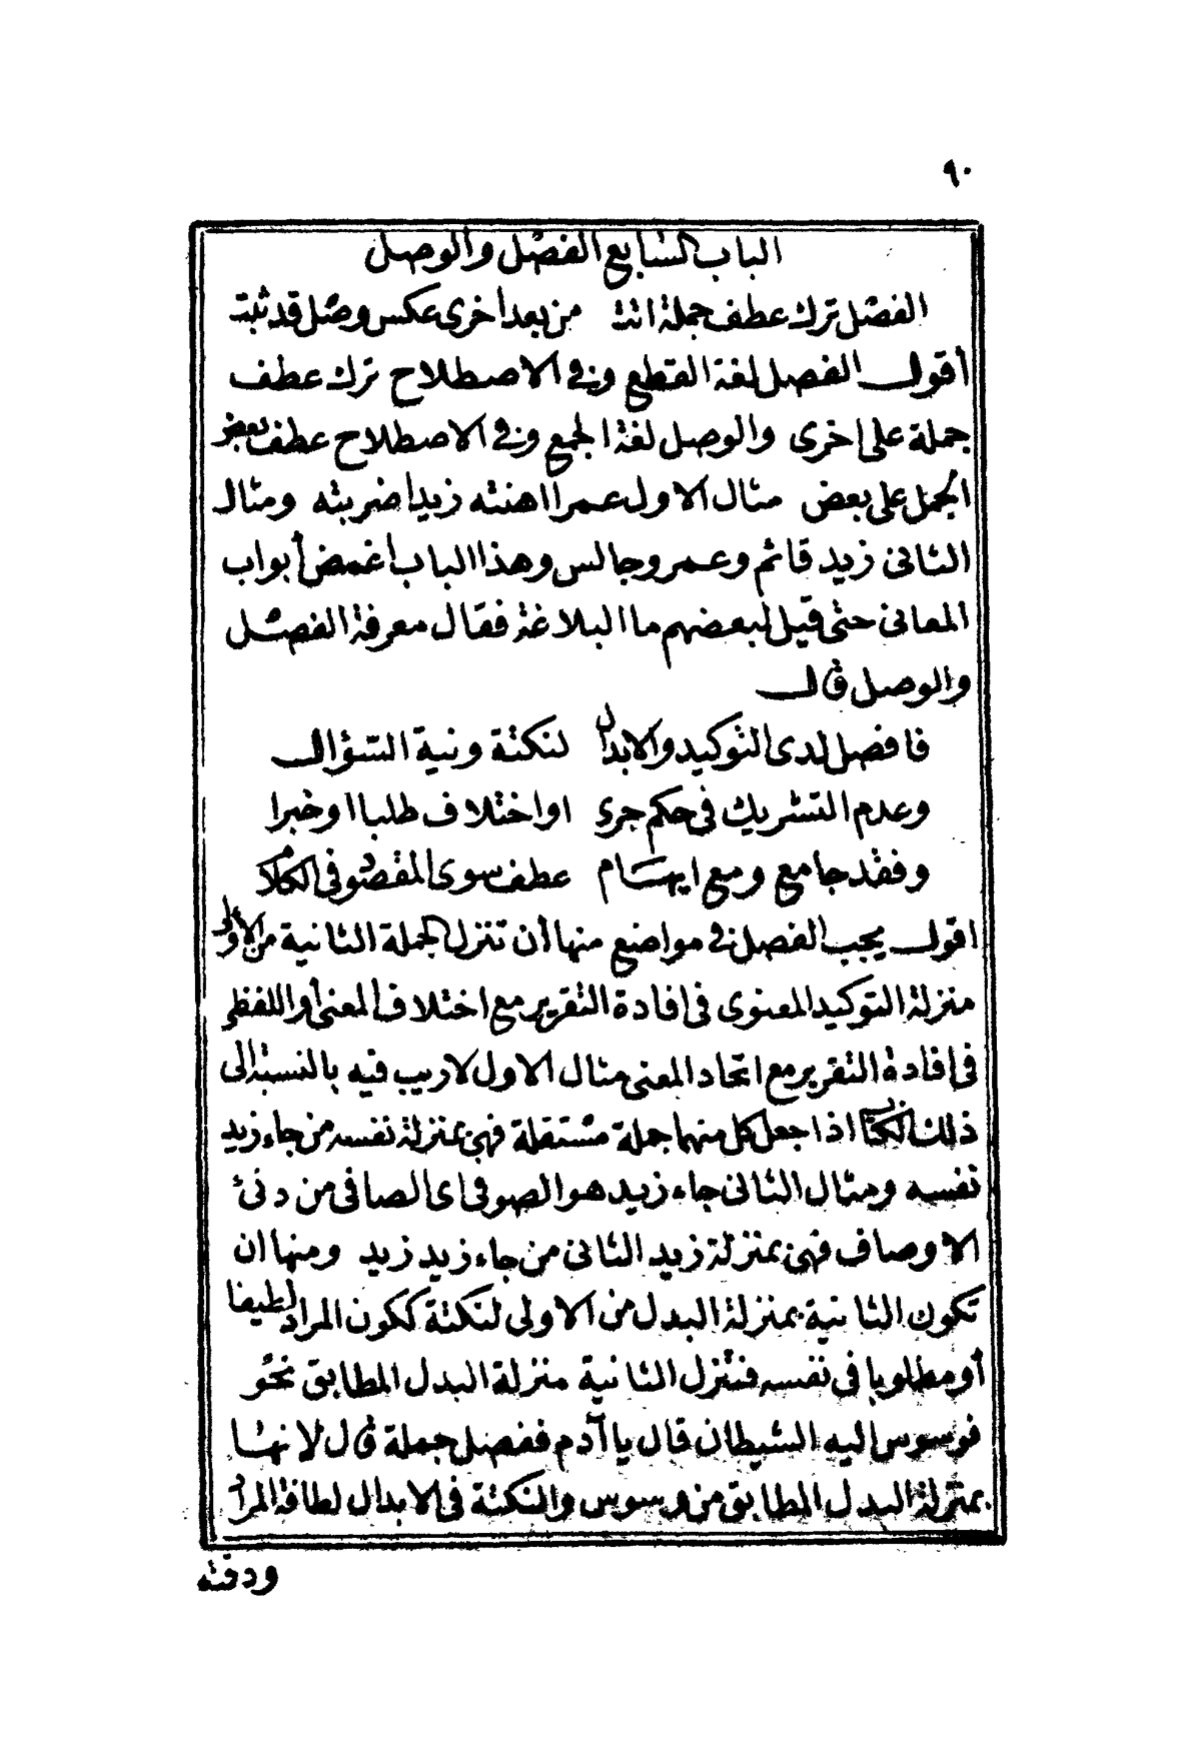 ٩٠
الباب السابع الفصل والوصل
الفصل ترك عطف جملة اتت من بعد اخرى عكس وصل قد ثبت
أقول الفصل لغة القطع وفي الاصطلاح ترك عطف
جملة على اخرى والوصل لغة الجمع وفي الاصطلاح عطف بعض
الجمل على بعض مثال الاول عمرا اهنته زيدا ضربته ومثال
الثاني زيد قائم وعمرو جالس وهذا الباب اغمض أبواب
المعاني حتى قيل لبعضهم ما البلاغة فقال معرفة الفصل
والوصل قال
فافصل لدى التوكيد والابدال لنكتة ونية السؤال
وعدم التشريك في حكم جرى او اختلاف طلبا او خبرا
وفقد جامع ومع ايهام عطف سوى المقصود في الكلام
اقول يجب الفصل في مواضع منها أن تنزل الجملة الثانية من الأولى
منزلة التوكيد المعنوى في افادة التقرير مع اختلاف المعنى أو اللفظي
في افادة التقرير مع اتحاد المعنى مثال الاول لا ريب فيه بالنسبة الى
ذلك الكتاب اذا جعل كل منهما جملة مستقلة فهي بمنزلة نفسه من جاء زيد
نفسه ومثال الثاني جاء زيد هو الصوفي اى الصافي من دنئ
الاوصاف فهي بمنزلة زيد الثاني من جاء زيد زيد ومنها ان
تكون الثانية بمنزلة البدل من الاولى لنكتة ككون المراد لطيفا
أو مطلوبا في نفسه فتنزل الثانية منزلة البدل المطابق نحو
فوسوس اليه الشيطان قال يا آدم ففصل جملة قال لانها
بمنزلة البدل المطابق من وسوس والنكتة في الابدال لطافة المراد
ودقته